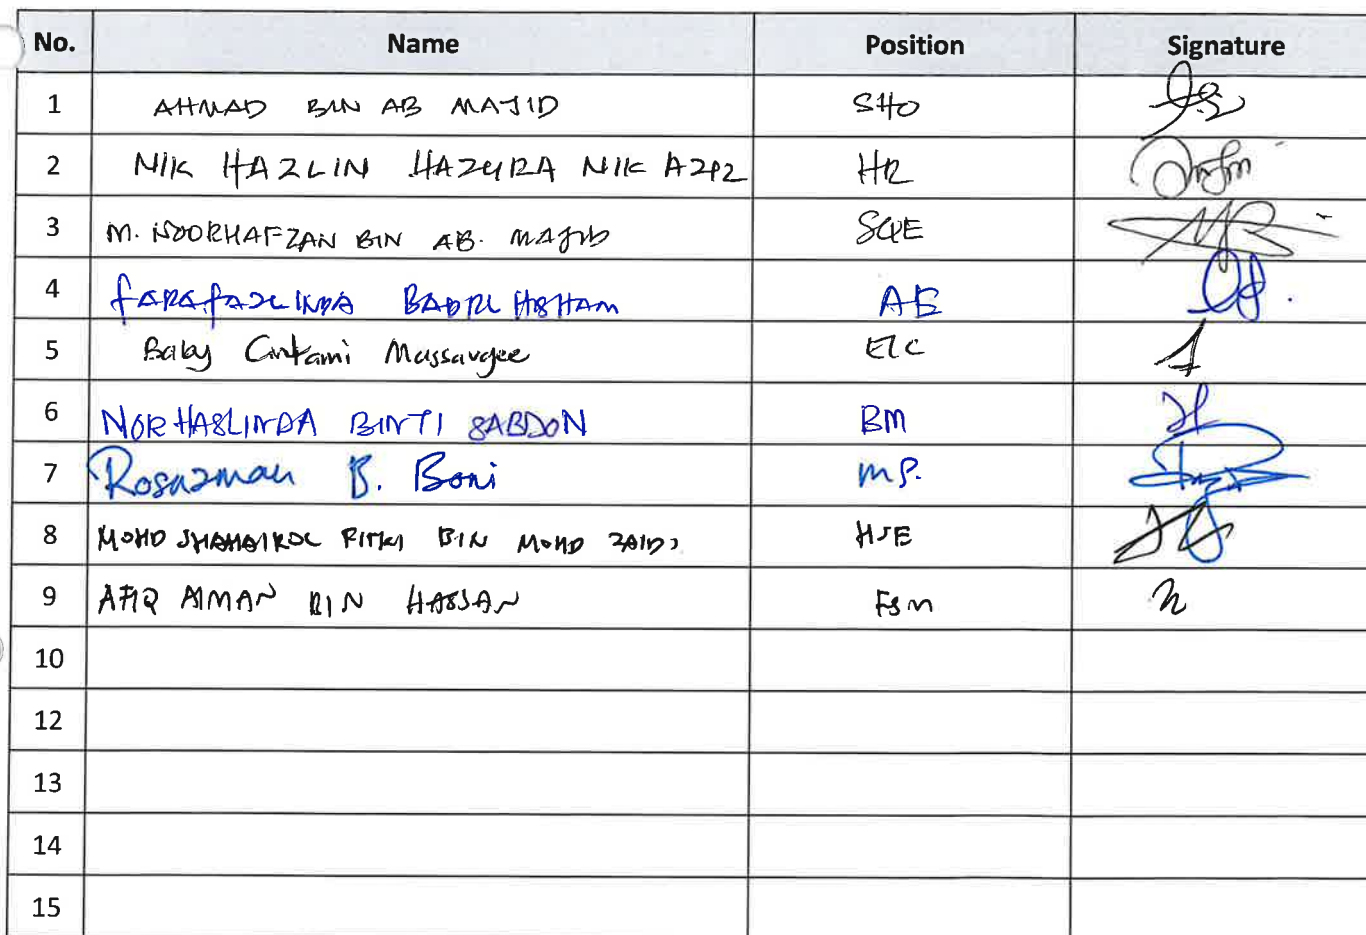 No. Name Position Signature
1 AHMAD BIN AB MAJID SHO
2 NIK HAZLIN HAZYRA NIK AZIZ HR
3 M. NOORHAFZAN BIN AB. MAJID SQE
4 FARAFAZLINDA BADRUL HISHAM AE
5 Baby EIC
6 NORHASLINDA BINTI SABDON BM
7 Rosazman B. Boni MP.
8 MOHD BIN MOHD ZAIDI HSE
9 AFIQ AIMAN BIN HASSAN FSM
10
12
13
14
15